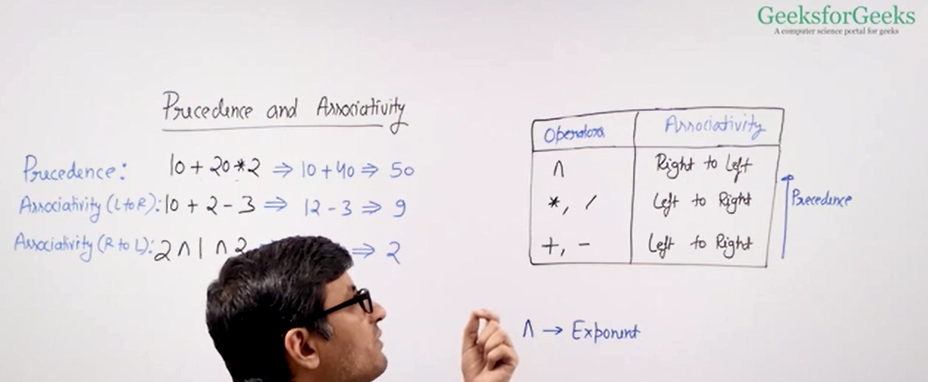 GeeksforGeeks
A computer science portal for geeks
Precedence and Associativity
Precedence: 10 + 20 * 2 ⇒ 10 + 40 ⇒ 50
Associativity (L to R): 10 + 2 - 3 ⇒ 12 - 3 ⇒ 9
Associativity (R to L): 2 ∧ 1 ∧ 2 ⇒ 2
Operators Associativity
∧ Right to Left
*, / Left to Right
+, - Left to Right
Precedence
∧ → Exponent